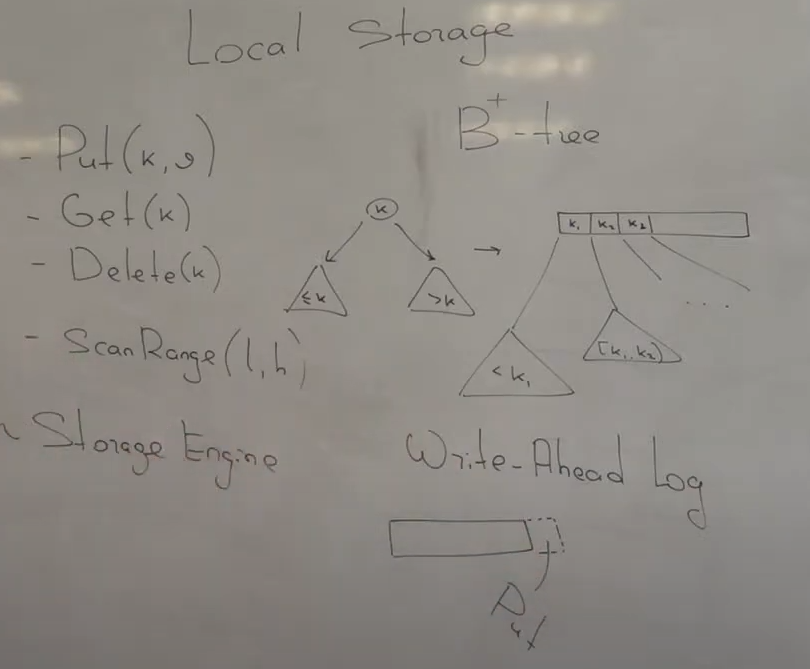 Local Storage
- Put(k, v)
- Get(k)
- Delete(k)
- ScanRange(l, h)
~ Storage Engine
B+-tree
k
≤k
>k
→
k₁ k₂ k₃
< k₁
[k₁, k₂)
. . .
Write-Ahead Log